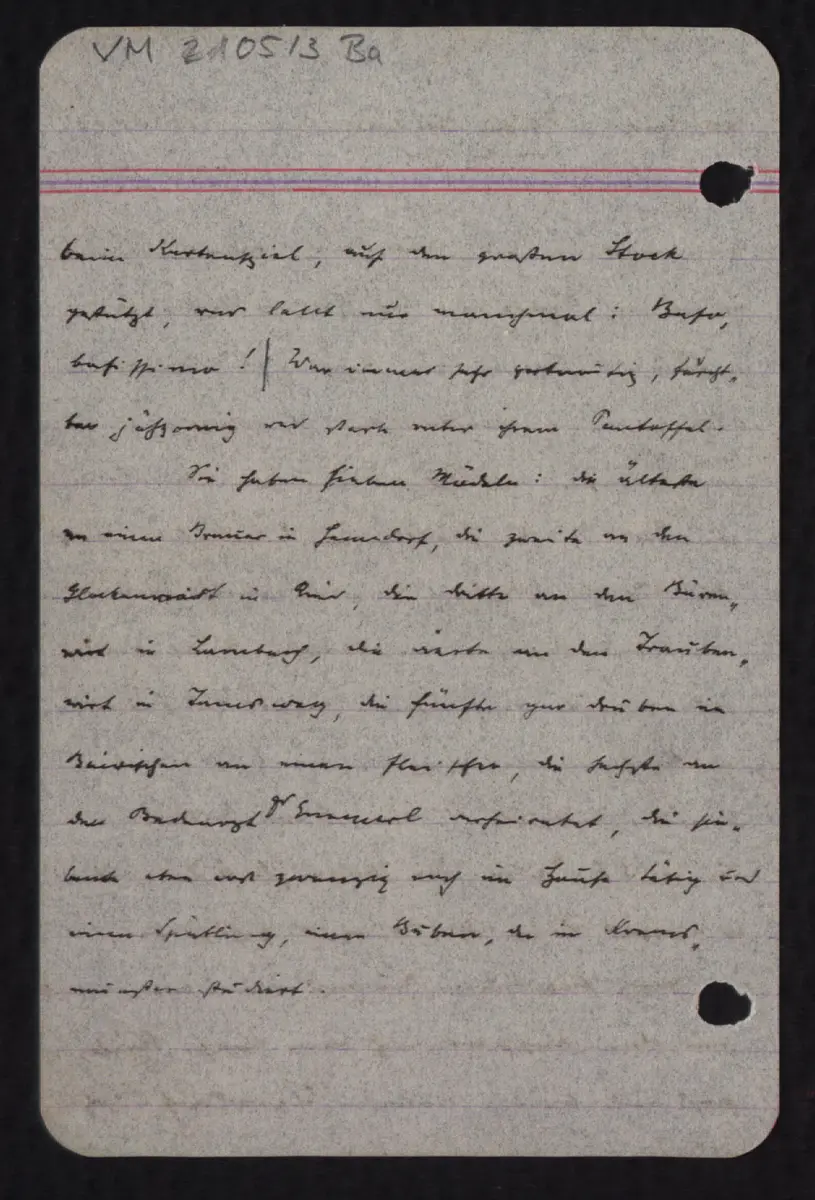 VM 21051/3 Ba
beim Kartenspiel, auf den großen Stock
gestützt, und lallt nur manchmal: Baso,
basissimo! | War immer sehr gutmütig, furcht-
bar jähzornig und stark unter ihrem Pantoffel.
Sie haben sieben Mädeln: die älteste
an einen Brauer in Henndorf, die zweite an den
Glockenwirt in, die dritte an den Bären-
wirt in Lambach, die vierte an den Trauben-
wirt in Tamsweg, die fünfte gar drüben im
Bairischen an einen Fleischer, die sechste an
den Badearzt Dr verheiratet, die sie-
bente eben erst zwanzig noch im Hause tätig und
einen Spätling, einen Buben, der in Krems-
münster studiert.